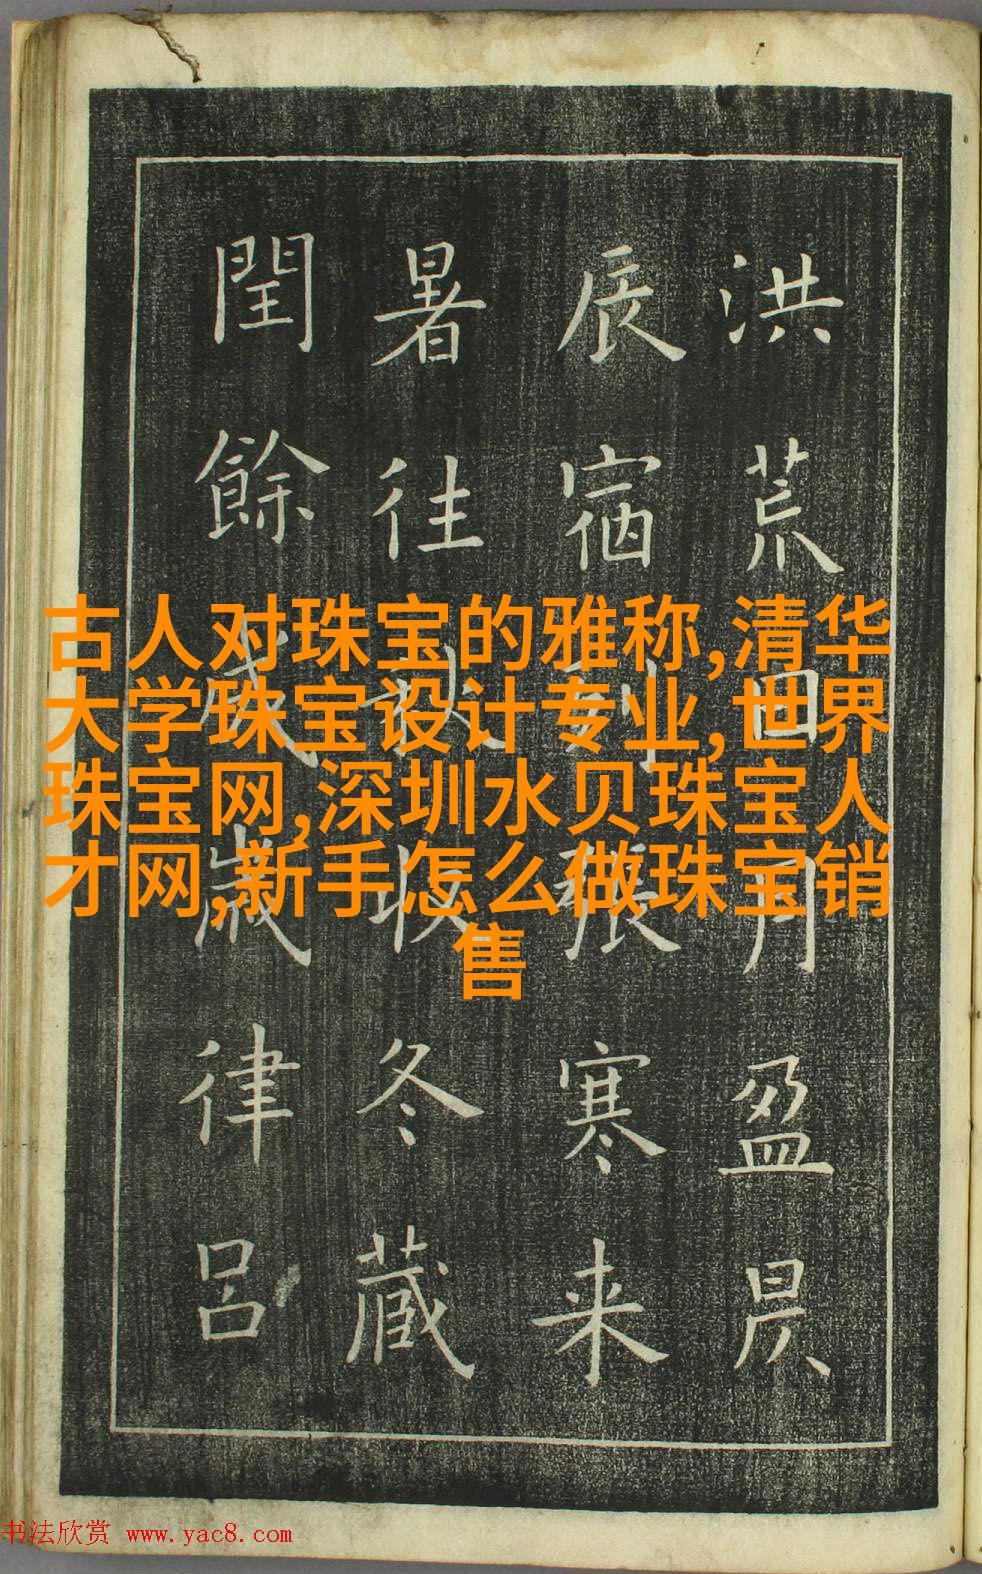 洪荒日月盈昃
辰宿列張寒来
暑往秋收冬藏
閏餘成歲律吕
古人对珠宝的雅称,清华
大学珠宝设计专业,世界
珠宝网,深圳水贝珠宝人
才网,新手怎么做珠宝销
售
书法欣赏 www.yac8.com